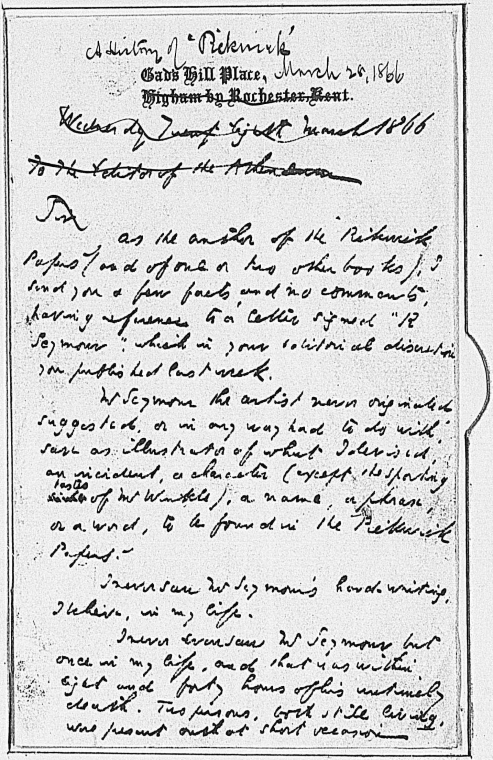 A History of "Pickwick"
Gad's Hill Place, March 28, 1866
Higham by Rochester, Kent.
Wednesday Twenty Eighth March 1866
To The Editor of the Athenæum
Sir
as the author of the Pickwick
Papers (and of one or two other books), I
send you a few facts, and no comments,
having reference to a letter signed "R
Seymour" which in your editorial discretion
you published last week.
Mr Seymour the artist never originated,
suggested, or in any way had to do with,
save as illustrator of what I devised,
an incident, a character (except the sporting
tastes
of Mr Winkle), a name, a phrase,
or a word, to be found in the Pickwick
Papers.
I never saw Mr Seymour's handwriting,
I believe, in my life.
I never even saw Mr Seymour but
once in my life, and that was within
eight and forty hours of his untimely
death. Two persons, both still living,
were present on that short occasion